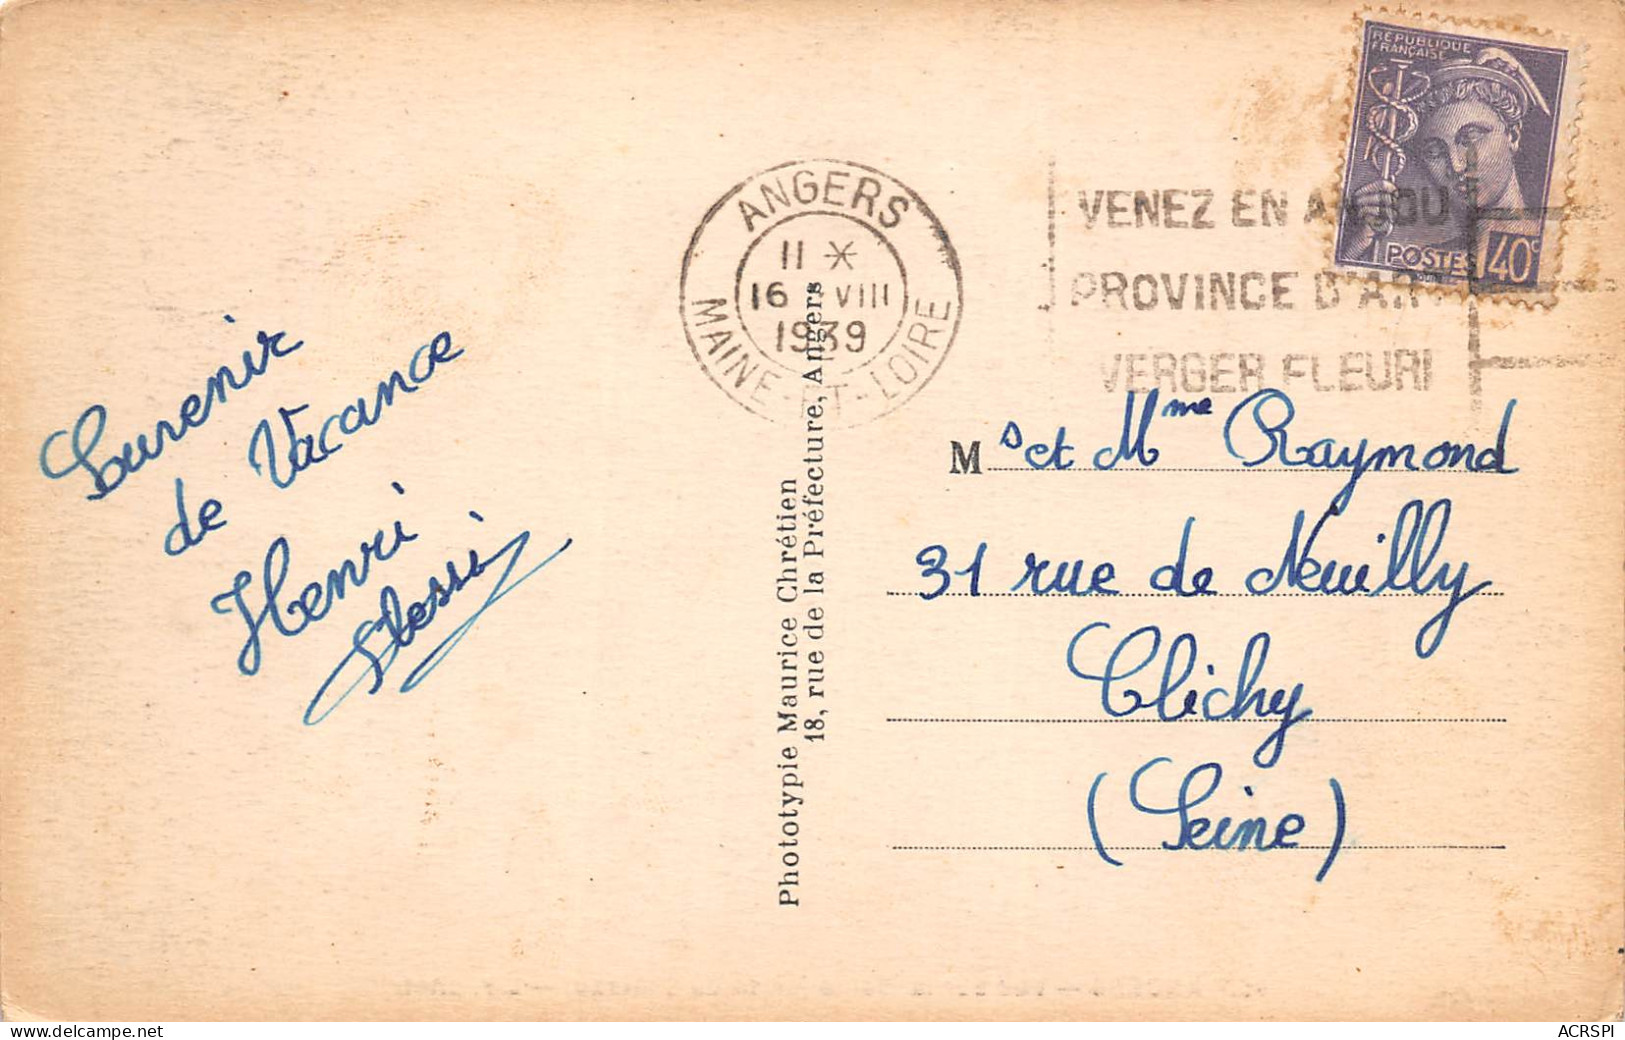 Souvenir
de Vacance
Henri
ANGERS
11 *
16 - VIII
1939
MAINE-ET-LOIRE
VENEZ EN ANJOU
PROVINCE D'ART
VERGER FLEURI
REPUBLIQUE
FRANÇAISE
POSTES 40c
Phototypie Maurice Chrétien
18, rue de la Préfecture, Angers
M s et Mme Raymond
31 rue de Neuilly
Clichy
(Seine)
delcampe.net
ACRSPI